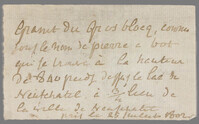 Granit du Gros blocq, connu
sous le nom de pierre a bot
qui se trouve à la hauteur
de 800 pieds dessus le lac de
Neuchatel à ½ lieu de
la ville de Neuchatel
pris le 25